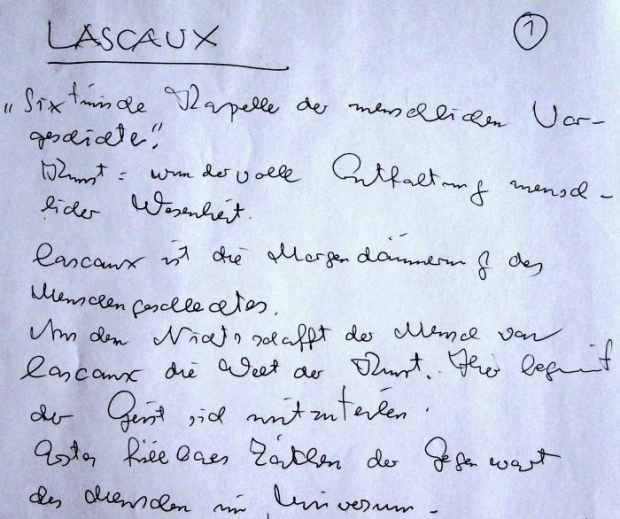 LASCAUX
1
"Sixtinische Kapelle der menschlichen Vor-
geschichte".
Kunst = wundervolle Entfaltung mensch-
licher Wesenheit.
Lascaux ist die Morgendämmerung des
Menschengeschlechtes.
Aus dem Nichts schafft der Mensch von
Lascaux die Welt der Kunst. Hier beginnt
der Geist sich mitzuteilen.
Erstes fühlbares Zeichen der Gegenwart
des Menschen im Universum.